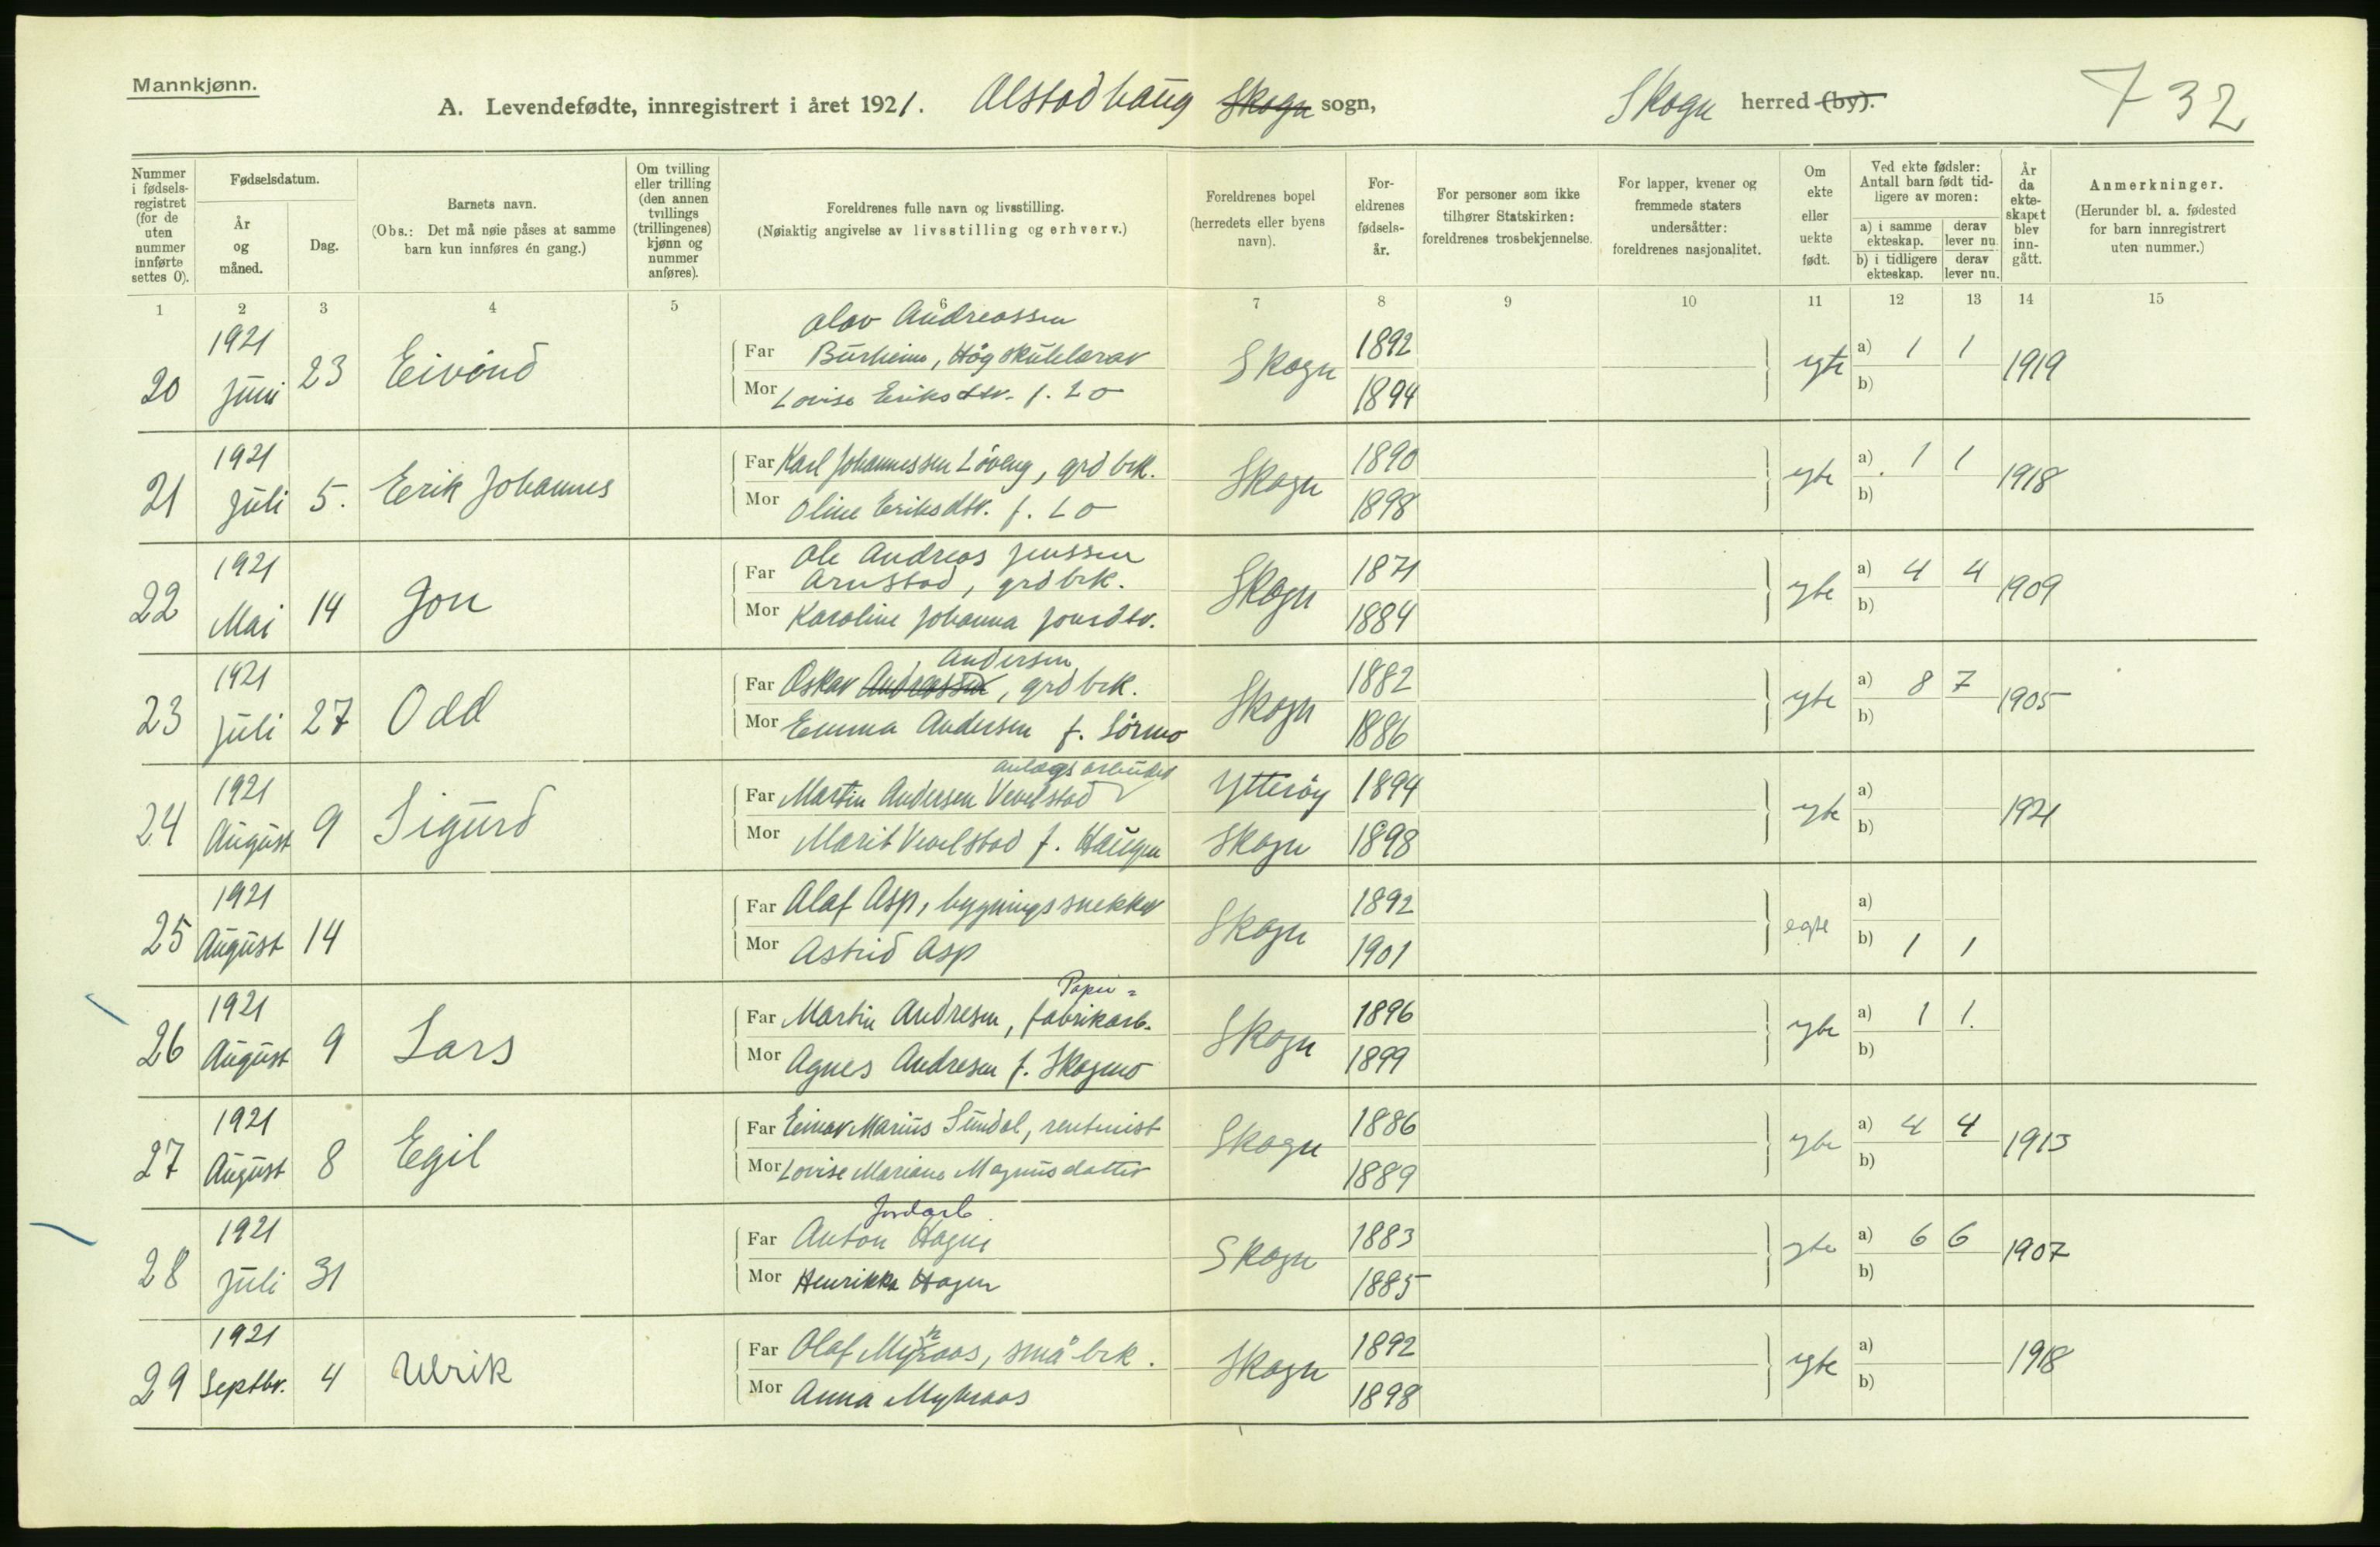 Mannkjønn.
A. Levendefødte, innregistrert i året 1921. Alstadhaug Skogn sogn, Skogn herred (by). 732
Nummer i fødsels-registret (for de uten nummer innførte settes 0).
Fødselsdatum.
År og måned.
Dag.
Barnets navn.
(Obs.: Det må nøie påses at samme barn kun innføres én gang.)
Om tvilling eller trilling (den annen tvillings (trillingenes) kjønn og nummer anføres).
Foreldrenes fulle navn og livsstilling.
(Nøiaktig angivelse av livsstilling og erhverv.)
Foreldrenes bopel (herredets eller byens navn).
For-eldrenes fødsels-år.
For personer som ikke tilhører Statskirken: foreldrenes trosbekjennelse.
For lapper, kvener og fremmede staters undersåtter: foreldrenes nasjonalitet.
Om ekte eller uekte født.
Ved ekte fødsler: Antall barn født tid-ligere av moren:
a) i samme ekteskap. derav lever nu.
b) i tidligere ekteskap. derav lever nu.
År da ekte-skapet blev inn-gått.
Anmerkninger.
(Herunder bl. a. fødested for barn innregistrert uten nummer.)
1 2 3 4 5 6 7 8 9 10 11 12 13 14 15
Olav Andreassen
20 1921 Juni 23 Eivind Far Burheim, Høgskulelærar Skogn 1892 egte a) 1 1 1919
Mor Lovise Eriksdtr. f. Lo 1894 b)
21 1921 Juli 5. Erik Johannes Far Karl Johannessen Løveng, grdbrk. Skogn 1890 egte a) 1 1 1918
Mor Oline Eriksdtr. f. Lo 1898 b)
Ole Andreas Jenssen
22 1921 Mai 14 Jon Far Arnstad, grdbrk. Skogn 1871 egte a) 4 4 1909
Mor Karoline Johanna Jonsdtr. 1884 b)
Andersen
23 1921 Juli 27 Odd Far Oskar Andreassen, grdbrk. Skogn 1882 egte a) 8 7 1905
Mor Emma Andersen f. Sörmo 1886 b)
anlægsarbeider
24 1921 August 9 Sigurd Far Martin Andersen Vevelstad Ytterøy 1894 egte a) 1921
Mor Marit Vevelstad f. Haugen Skogn 1898 b)
25 1921 August 14 Far Olaf Asp, bygningssnekker Skogn 1892 egte a)
Mor Astrid Asp 1901 b) 1 1
Papir=
26 1921 August 9 Lars Far Martin Andresen, fabrikarb. Skogn 1896 egte a) 1 1.
Mor Agnes Andresen f. Skogmo 1899 b)
27 1921 August 8 Egil Far Einar Marius Sundal, rentenist Skogn 1886 egte a) 4 4 1913
Mor Lovise Mariane Magnusdatter 1889 b)
Jordarb.
28 1921 Juli 31 Far Anton Hagen Skogn 1883 egte a) 6 6 1907
Mor Henrikka Hagen 1885 b)
29 1921 Septbr. 4 Ulrik Far Olaf Myhraas, småbrk. Skogn 1892 egte a) 1918
Mor Anna Myhraas 1898 b)